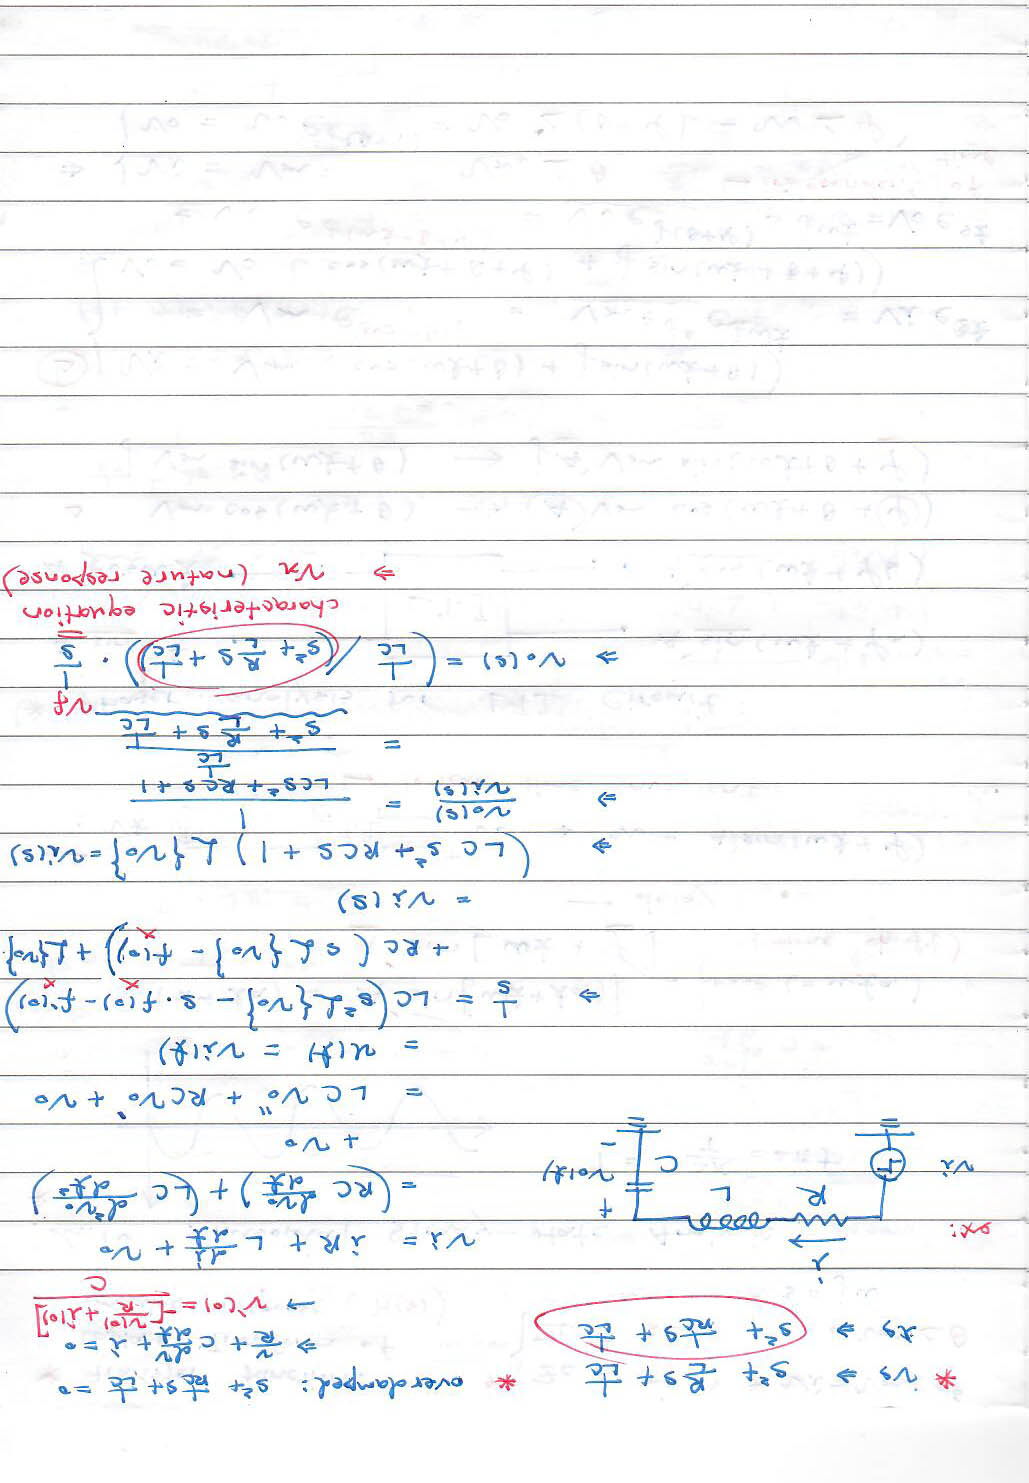 * vs ⇒ s² + R/L s + 1/LC
is ⇒ s² + 1/RC s + 1/LC
* overdamped: s² + 1/RC s + 1/LC = 0
⇒ v/R + C dv/dt + i = 0
→ v'(0) = -[v(0)/R + i(0)] / C
ex:
i
R
L
vi
C
+
vo(t)
-
vi = iR + L di/dt + vo
= (RC dvo/dt) + (LC d²vo/dt²)
+ vo
= LC vo'' + RC vo' + vo
= u(t) = vi(t)
⇒ 1/s = LC(s²ℒ{vo} - s·f(0) - f'(0))
+ RC(sℒ{vo} - f(0)) + ℒ{vo}
= vi(s)
⇒ (LCs² + RCs + 1) ℒ{vo} = vi(s)
⇒ vo(s)/vi(s) = 1/(LCs² + RCs + 1)
= (1/LC)/(s² + R/L s + 1/LC)
vf
⇒ vo(s) = (1/LC /(s² + R/L s + 1/LC)) · 1/s
characteristic equation
⇒ vn (nature response)